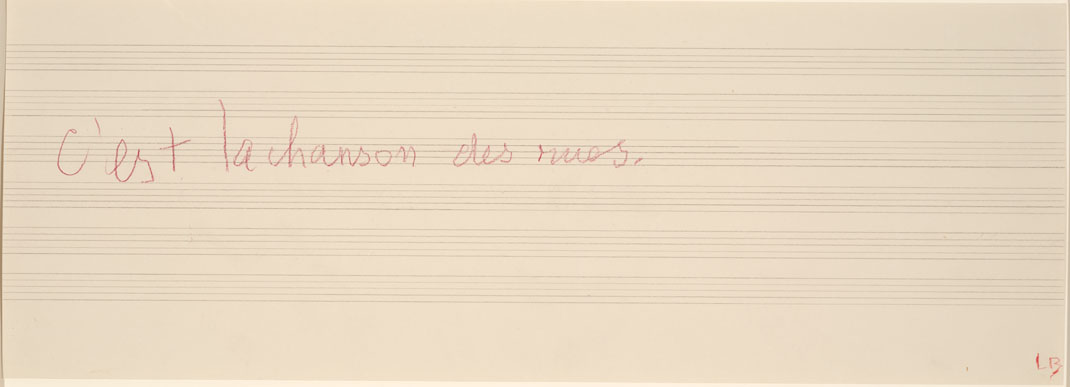 C'est la chanson des rues.
LB